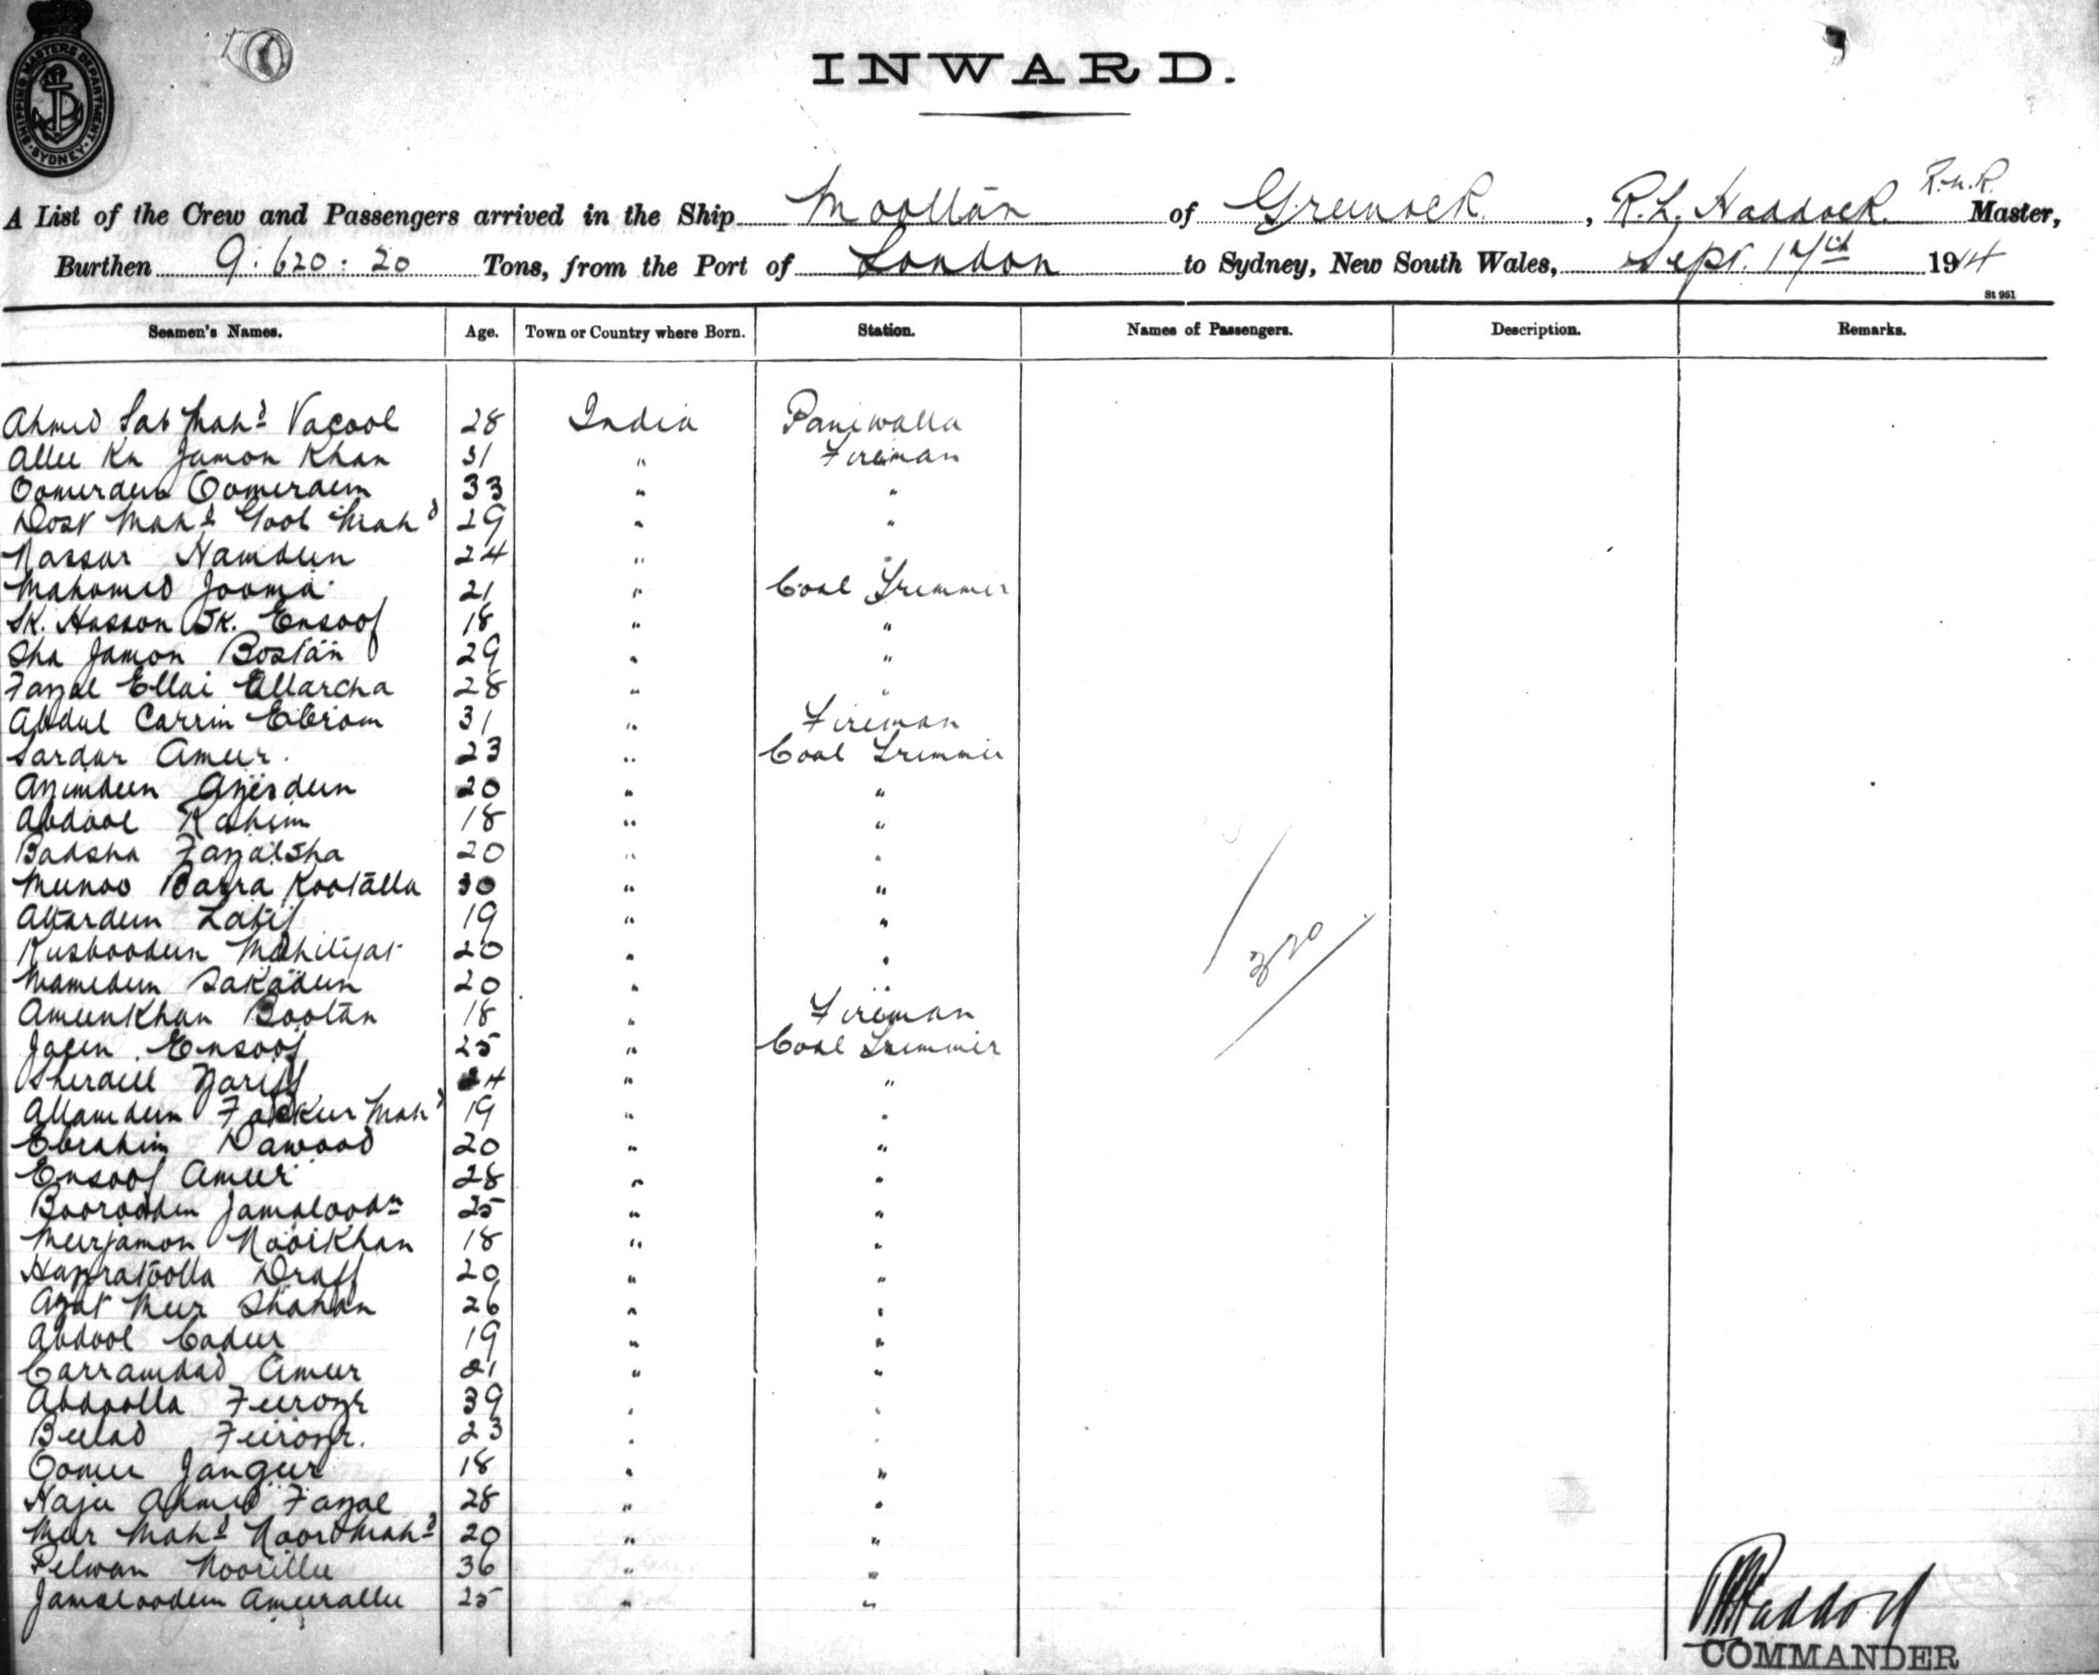 SHIPPING MASTERS DEPARTMENT · SYDNEY ·
INWARD.
A List of the Crew and Passengers arrived in the Ship Mooltan of Greenock, R.L. Haddock. R.N.R. Master,
Burthen 9:620:20 Tons, from the Port of London to Sydney, New South Wales, Sept. 17th 1914
St 951
Seamen's Names. Age. Town or Country where Born. Station. Names of Passengers. Description. Remarks.
Ahmed Sab Mahd Vacool 28 India Paniwalla
Allee Kn Jumon Khan 31 " Fireman
Oomerdeen Oomerdeen 33 " "
Dost Mahd Gool Mahd 29 " "
Nassar Hamdeen 24 " "
Mahomed Jooma 21 " Coal Trimmer
Sk. Hasson Sk. Ensoof 18 " "
Sha Jamon Bostan 29 " "
Fazal Ellai Ellarcha 28 " "
Abdul Carrim Ebriam 31 " Fireman
Sardar Ameer. 23 " Coal Trimmer
Azimdeen Azisdeen 20 " "
Abdool Rahim 18 " "
Badsha Fazalsha 20 " "
Munoo Barra Kootalla 30 " "
Attardeen Latif 19 " "
Kusboodeen 20 " "
Mamedeen Sakadeen 20 " "
Ameenkhan Bootan 18 " Fireman
Ensoof 25 " Coal Trimmer
Sherdill Zariff 24 " "
Allamdeen Fakkur Mahd 19 " "
Ebrahim Dawood 20 " "
Ensoof Ameer 28 " "
Boorodden Jamaloodn 25 " "
Meerjamon Nooikhan 18 " "
Hazratoolla Draff 20 " "
Azat Meer Shahan 26 " "
Abdool Cadeer 19 " "
Carramdad Ameer 21 " "
Abdoolla Feeroze 39 " "
Beelad Feeroze. 23 " "
Oomer Jangeer 18 " "
Haju Ahmed Fazal 28 " "
Meer Mahd Noor Mahd 20 " "
Pelwan Noorillee 36 " "
Jamaloodeen Ameerallee 25 " "
320
R L Haddock
COMMANDER